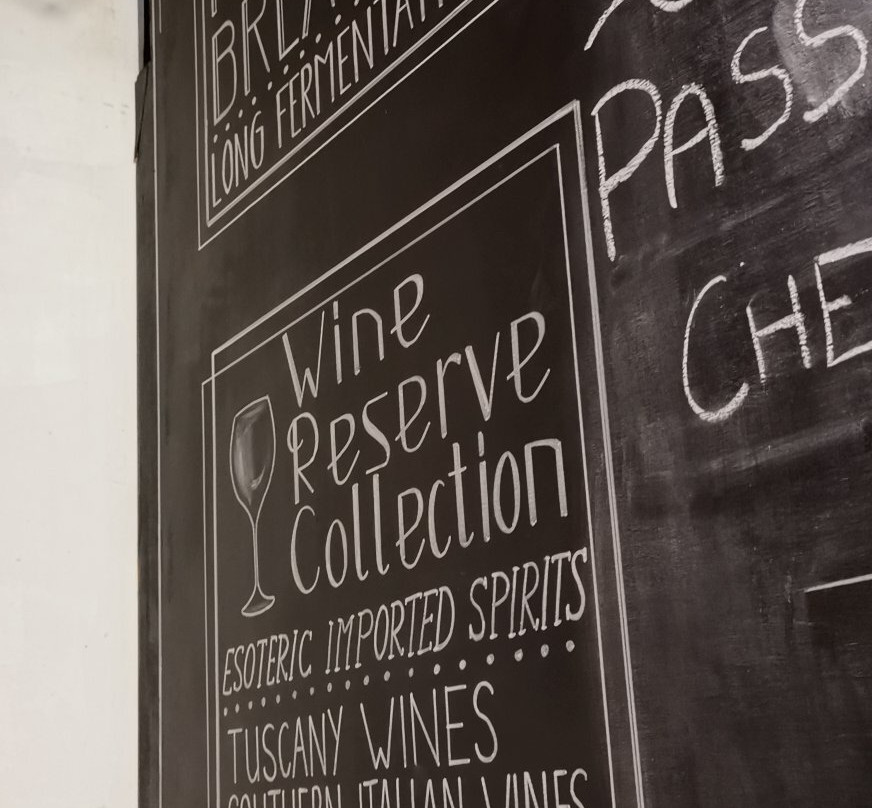 LONG
Wine
Reserve
Collection
ESOTERIC IMPORTED SPIRITS
TUSCANY WINES
SOUTHERN ITALIAN WINES
PASS
CHE